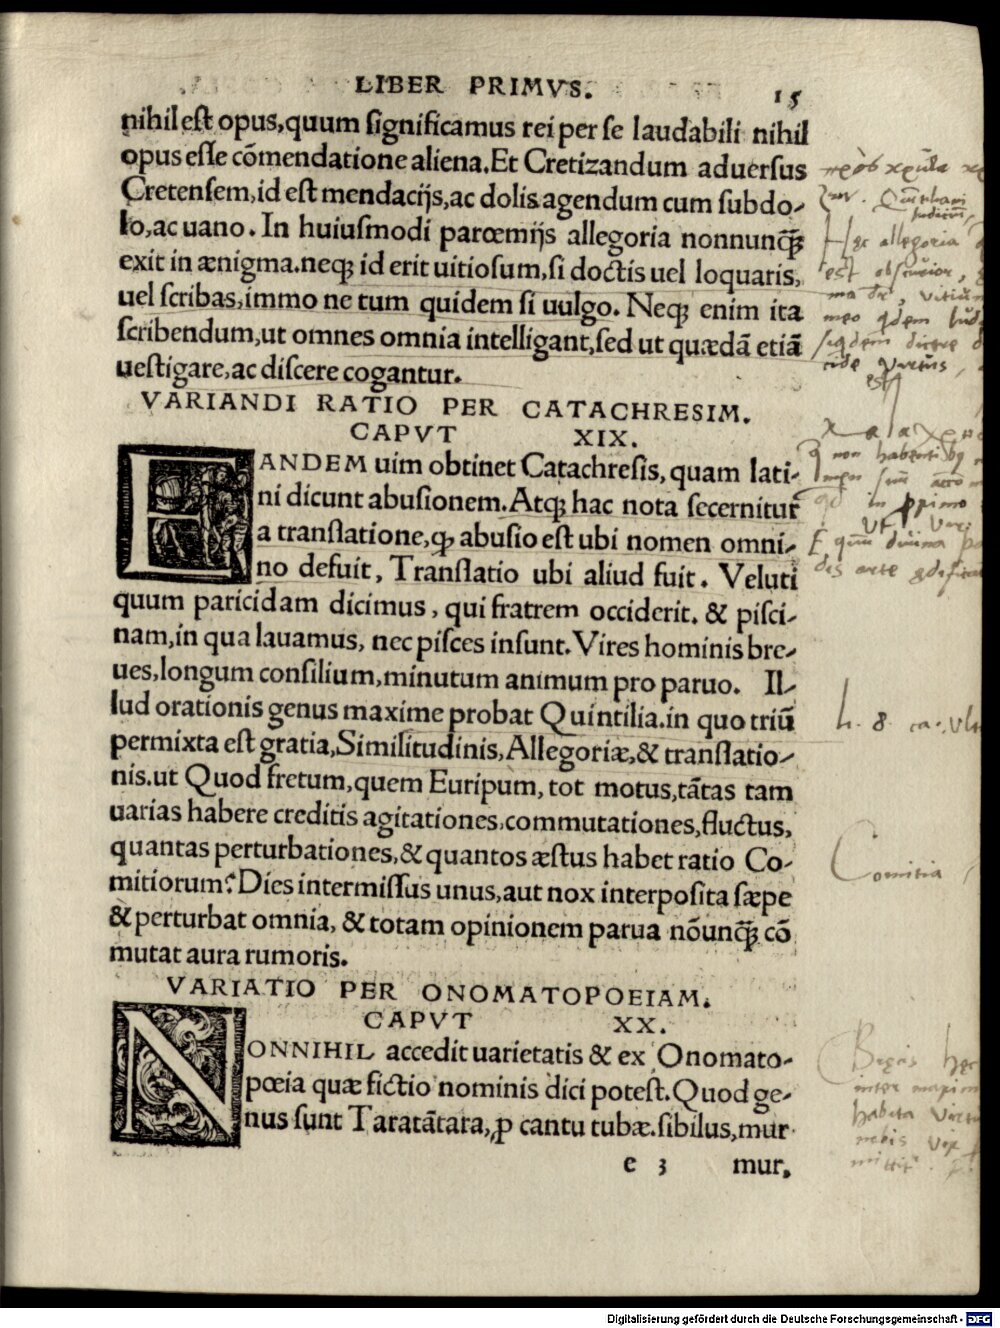 LIBER PRIMVS. 15
nihil est opus, quum significamus rei per se laudabili nihil
opus esse cõmendatione aliena. Et Cretizandum aduersus
Cretensem, id est mendacijs, ac dolis agendum cum subdo-
lo, ac uano. In huiusmodi parœmijs allegoria nonnunq̃ꝫ
exit in ænigma. neqꝫ id erit uitiosum, si doctis uel loquaris,
uel scribas, immo ne tum quidem si uulgo. Neqꝫ enim ita
scribendum, ut omnes omnia intelligant, sed ut quædã etiã
uestigare, ac discere cogantur.
VARIANDI RATIO PER CATACHRESIM.
CAPVT XIX.
EANDEM uim obtinet Catachresis, quam lati-
ni dicunt abusionem. Atqꝫ hac nota secernitur
a translatione, ꝙ abusio est ubi nomen omni-
no defuit, Translatio ubi aliud fuit. Veluti
quum paricidam dicimus, qui fratrem occiderit. & pisci-
nam, in qua lauamus, nec pisces insunt. Vires hominis bre-
ues, longum consilium, minutum animum pro paruo. Il-
lud orationis genus maxime probat Quintilia. in quo triũ
permixta est gratia, Similitudinis, Allegoriæ, & translatio-
nis. ut Quod fretum, quem Euripum, tot motus, tãtas tam
uarias habere creditis agitationes, commutationes, fluctus,
quantas perturbationes, & quantos æstus habet ratio Co-
mitiorum? Dies intermissus unus, aut nox interposita sæpe
& perturbat omnia, & totam opinionem parua nõunq̃ꝫ cõ
mutat aura rumoris.
VARIATIO PER ONOMATOPOEIAM.
CAPVT XX.
NONNIHIL accedit uarietatis & ex Onomato-
pœia quæ fictio nominis dici potest. Quod ge-
nus sunt Taratãtara, ꝓ cantu tubæ. sibilus, mur
e 3 mur,
Hec allegoria
est obscurior,
in ꝓpimo
L. 8. ca.
Comitia
habita
Digitalisierung gefördert durch die Deutsche Forschungsgemeinschaft - DFG